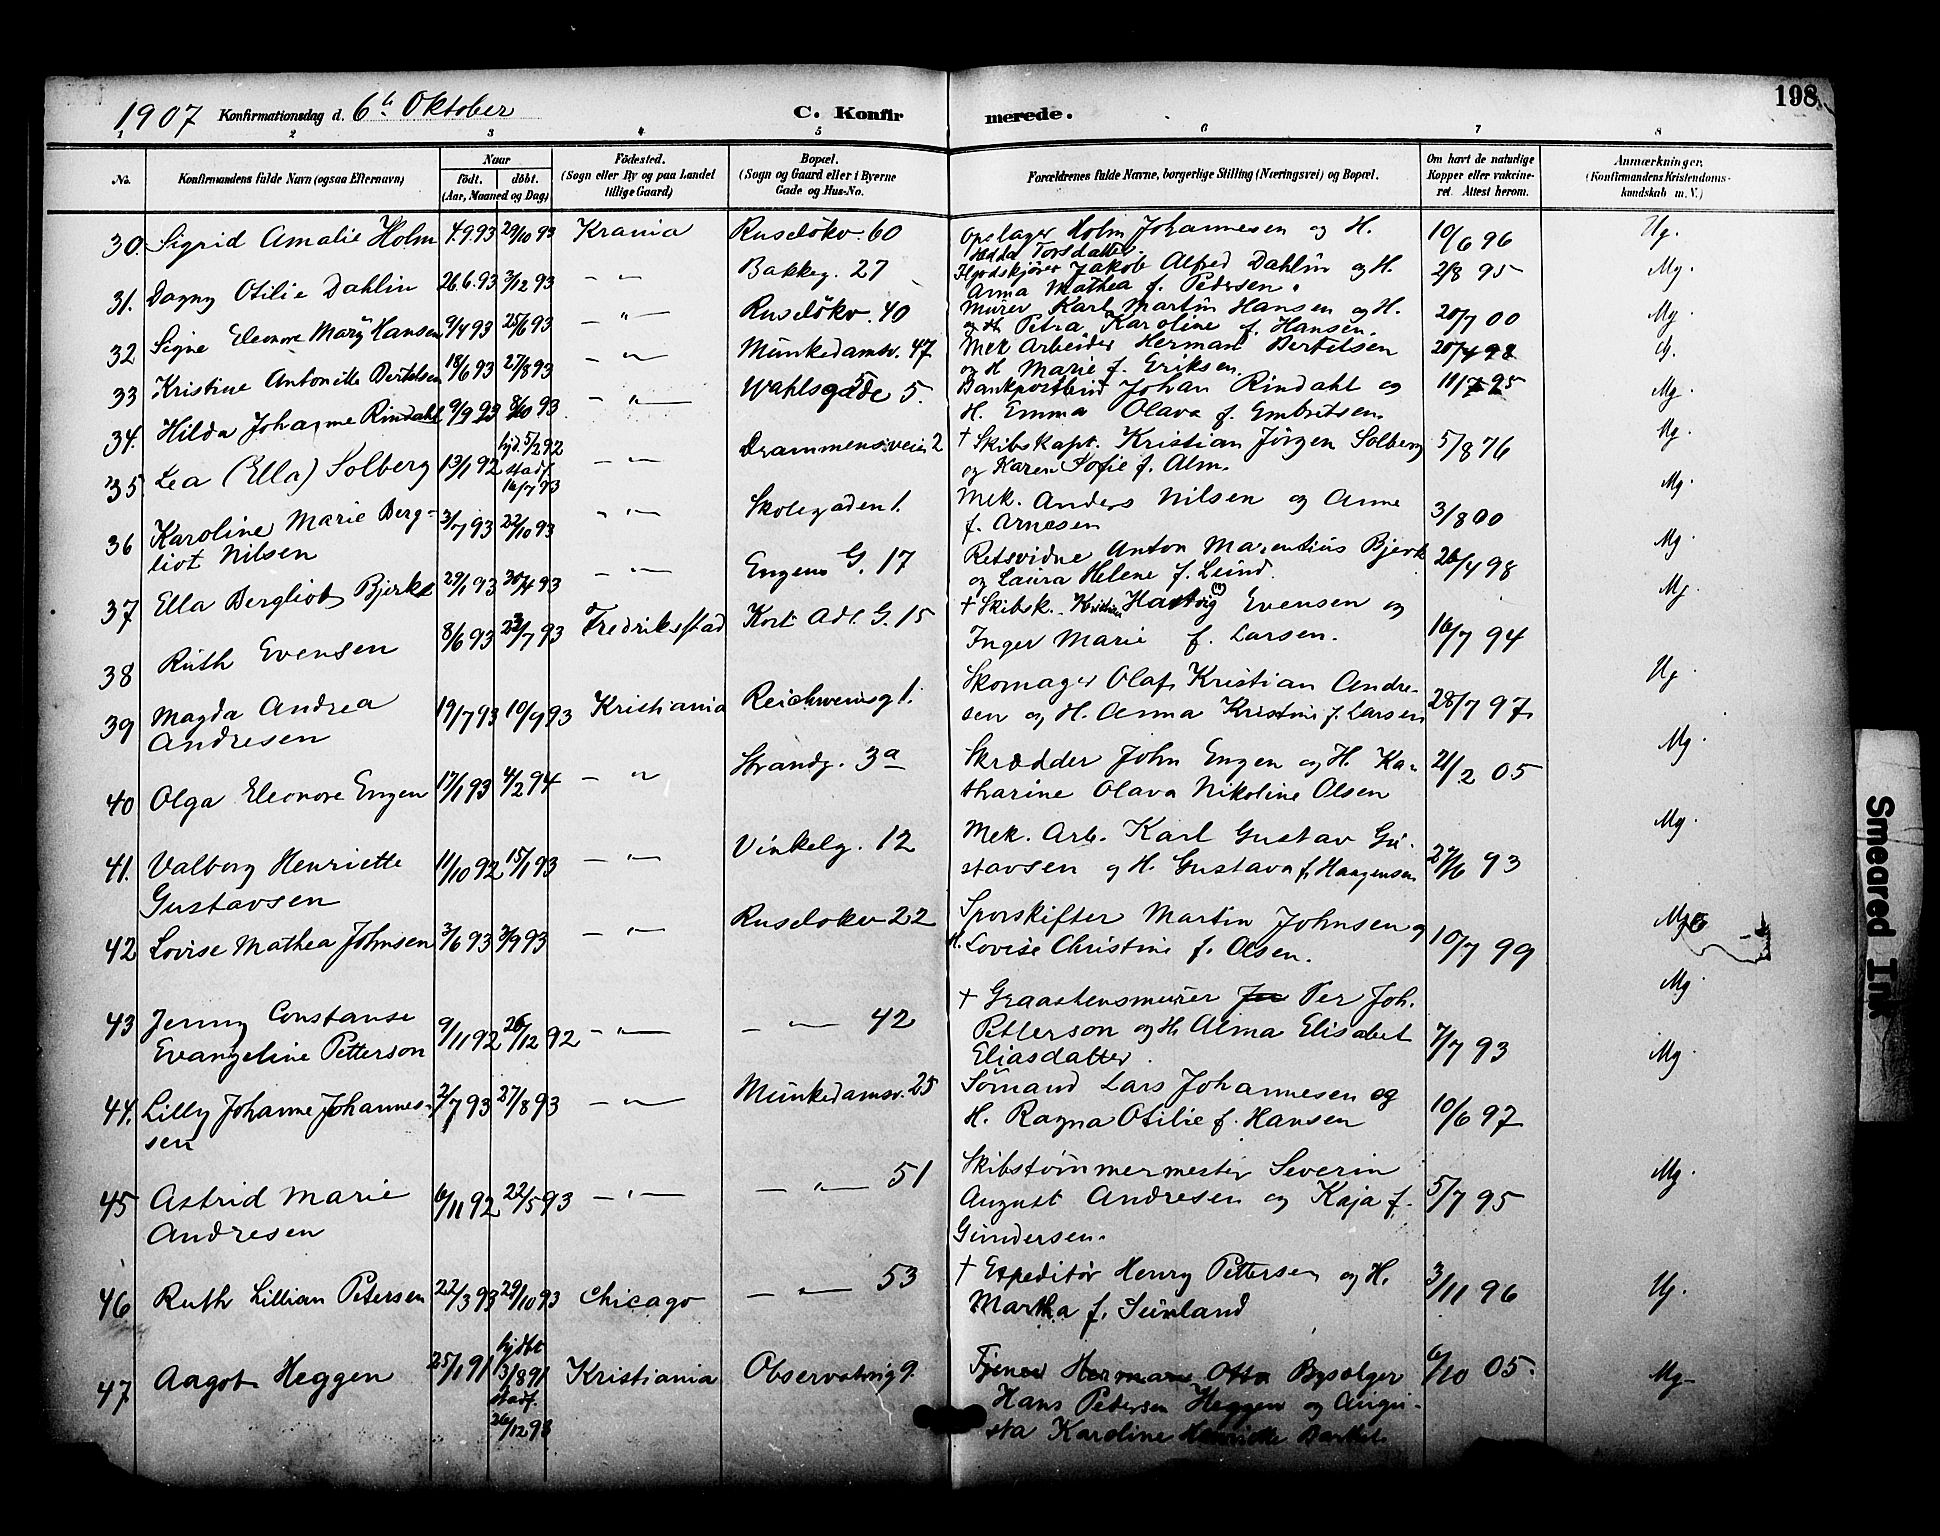 198
1907 Konfirmationsdag d. 6te Oktober C. Konfirmerede.
1 2 3 4 5 6 7 8
No. Konfirmandens fulde Navn (ogsaa Efternavn) Naar født. døbt. (Aar, Maaned og Dag) Fødested. (Sogn eller By og paa Landet tillige Gaard) Bopæl. (Sogn og Gaard eller i Byerne Gade og Hus-No. Forældrenes fulde Navne, borgerlige Stilling (Næringsvei) og Bopæl. Om havt de naturlige Kopper eller vaccineret. Attest herom. Anmærkninger. (Konfirmandens Kristendomskundskab m. V.)
30. Sigrid Amalie Holm 4.9.93 29/10 93 Krania Ruseløkv. 60 Opslager Holm Johannesen og H. 10/6 96 Ug.
Hedda Torsdatter
31. Dagny Otilie Dahlin 26.6.93 3/12 93 — " — Bakkeg. 27 Jakob Alfred Dahlin og H. 2/8 95 Mg.
Anna Mathea f. Pedersen.
32 Signe Eleonore Mary Hansen 9/4 93 25/6 93 — " — Ruseløkv. 40 Murer Karl Martin Hansen og H. 20/7 00 Mg.
Petra Karoline f. Hansen.
33 Kristine Antonette Bertelsen 18/6 93 27/8 93 — " — Munkedamsv. 47 Mek Arbeider Herman Bertelsen 20/4 98 G.
og H Marie f. Eriksen.
34. Hilda Johanne Rindahl 9/9 93 8/10 93 — " — Wahlsgade 5. Bankpostbud Johan Rindahl og 11/7 95 Mg.
H. Emma Olava f. Embretsen.
35 Lea (Ella) Solberg 13/1 92 hjd. 5/2 92 stadf. 16/7 93 — " — Drammensveien 2 † Skibskapt. Kristian Jørgen Solberg 5/8 76 Mg.
og Karen Sofie f. Alm.
36 Karoline Marie Berg- 3/7 93 22/10 93 — " — Skolegaden 1. Mek. Anders Nilsen og Anne 3/8 00 Mg.
liot Nilsen f. Arnesen
37 Ella Bergliot Bjerke 29/1 93 30/4 93 — " — Engens G. 17 Retsvidne Anton Marentius Bjerk 26/4 98 Mg.
og Laura Helene f. Lund.
38 Ruth Evensen 8/6 93 23/7 93 Fredriksstad Kort Adl. G. 15 † Skibsk. Kristian Hartvig Evensen og 16/7 94 Mg.
Inger Marie f. Larsen.
39 Magda Andrea 19/7 93 10/9 93 Kristiania Reichweinsg 1. Skomager Olaf Kristian Andre- 28/7 97. Ug.
Andresen sen og H. Anna Kristine f. Larsen
40 Olga Eleonore Engen 17/1 93 4/2 94 — " — Strandg. 3a Skrædder John Engen og H. Ka- 21/2 05 Mg.
tharine Olava Nikoline Olsen
41. Valborg Henriette 11/10 92 15/1 93 — " — Vinkelg. 12 Mek. Arb. Karl Gustav Gu- 27/6 93 Mg.
Gustavsen stavsen og H. Gustava f. Haagensen
42 Lovise Mathea Johnsen 3/6 93 3/9 93 — " — Ruseløkv 22 Sporskifter Martin Johnsen og 10/7 99 Mg
H. Lovise Christine f. Olsen.
43 Jenny Constanse 9/11 92 26/12 92 — " — — " — 42 † Graastensmurer Per Joh. 7/7 93 Mg
Evangeline Petterson Petterson og H. Alma Elisabet
Eliasdatter.
44. Lilly Johanne Johannes- 2/7 93 27/8 93 — " — Munkedamsv. 25 Sømand Lars Johannesen og 10/6 97 Mg.
sen H. Ragna Otilie f. Hansen
45 Astrid Marie 6/11 92 22/5 93 — " — — " — 51 Skibstømmermester Severin 5/7 95 Mg.
Andresen August Andresen og Kaja f.
Gundersen.
46 Ruth Lillian Petersen 22/3 93 29/10 93 Chicago — " — 53 † Expeditør Henry Pettersen og H. 3/11 96 Ug.
Martha f. Sunland
47. Aagot Heggen 25/1 91 hjdbt 3/8 91 stadf. 26/12 93 Kristiania Observatorig 9. Tjener Herman Otto Bysælger 6/10 05. Mg.
Hans Petersen Heggen og Augu-
sta Karoline Henriette
Smeared Ink